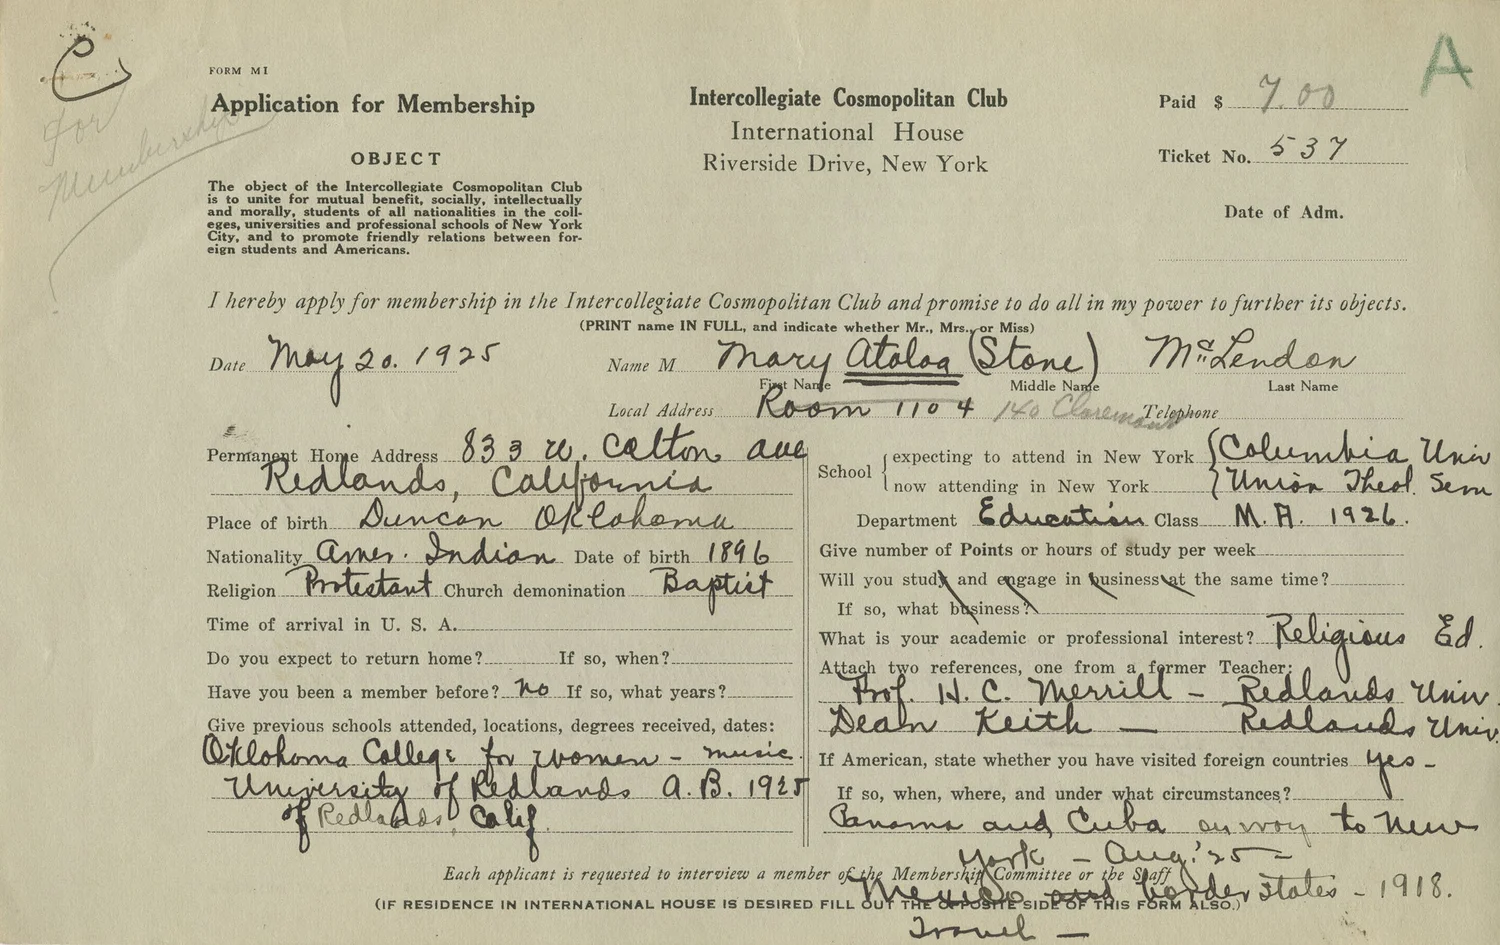 C
A
for
Membership
FORM M1
Application for Membership
OBJECT
The object of the Intercollegiate Cosmopolitan Club
is to unite for mutual benefit, socially, intellectually
and morally, students of all nationalities in the coll-
eges, universities and professional schools of New York
City, and to promote friendly relations between for-
eign students and Americans.
Intercollegiate Cosmopolitan Club
International House
Riverside Drive, New York
Paid $ 7.00
Ticket No. 537
Date of Adm.
I hereby apply for membership in the Intercollegiate Cosmopolitan Club and promise to do all in my power to further its objects.
(PRINT name IN FULL, and indicate whether Mr., Mrs., or Miss)
Date May 20. 1925 Name M Mary Atoloa (Stone) McLendon
First Name Middle Name Last Name
Local Address Room 1104 140 Claremont Telephone
Permanent Home Address 833 W. Colton ave
Redlands, California
Place of birth Duncan Oklahoma
Nationality Amer. Indian Date of birth 1896
Religion Protestant Church demonination Baptist
Time of arrival in U. S. A.
Do you expect to return home? If so, when?
Have you been a member before? no If so, what years?
Give previous schools attended, locations, degrees received, dates:
Oklahoma College for women - music.
University of Redlands A.B. 1925
of Redlands, Calif.
School { expecting to attend in New York { Columbia Univ
now attending in New York { Union Theol. Sem
Department Education Class M.A. 1926.
Give number of Points or hours of study per week
Will you study and engage in business at the same time?
If so, what business?
What is your academic or professional interest? Religious Ed.
Attach two references, one from a former Teacher:
Prof. H. C. Merrill - Redlands Univ.
Dean Keith — Redlands Univ.
If American, state whether you have visited foreign countries yes -
If so, when, where, and under what circumstances?
Panama and Cuba on way to New
York - Aug. '25 -
Each applicant is requested to interview a member of the Membership Committee or the Staff
Mexico and border States - 1918.
(IF RESIDENCE IN INTERNATIONAL HOUSE IS DESIRED FILL OUT THE OPPOSITE SIDE OF THIS FORM ALSO.)
Travel —